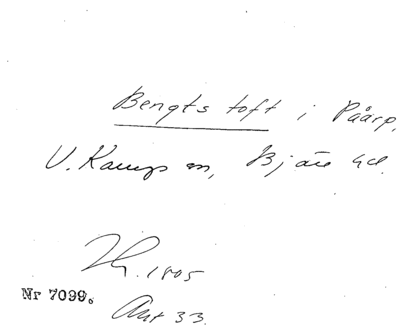 Bengts toft i Påarp,
V. Karup sn, Bjäre hd.
1805
Nr 7099.
Akt 33.